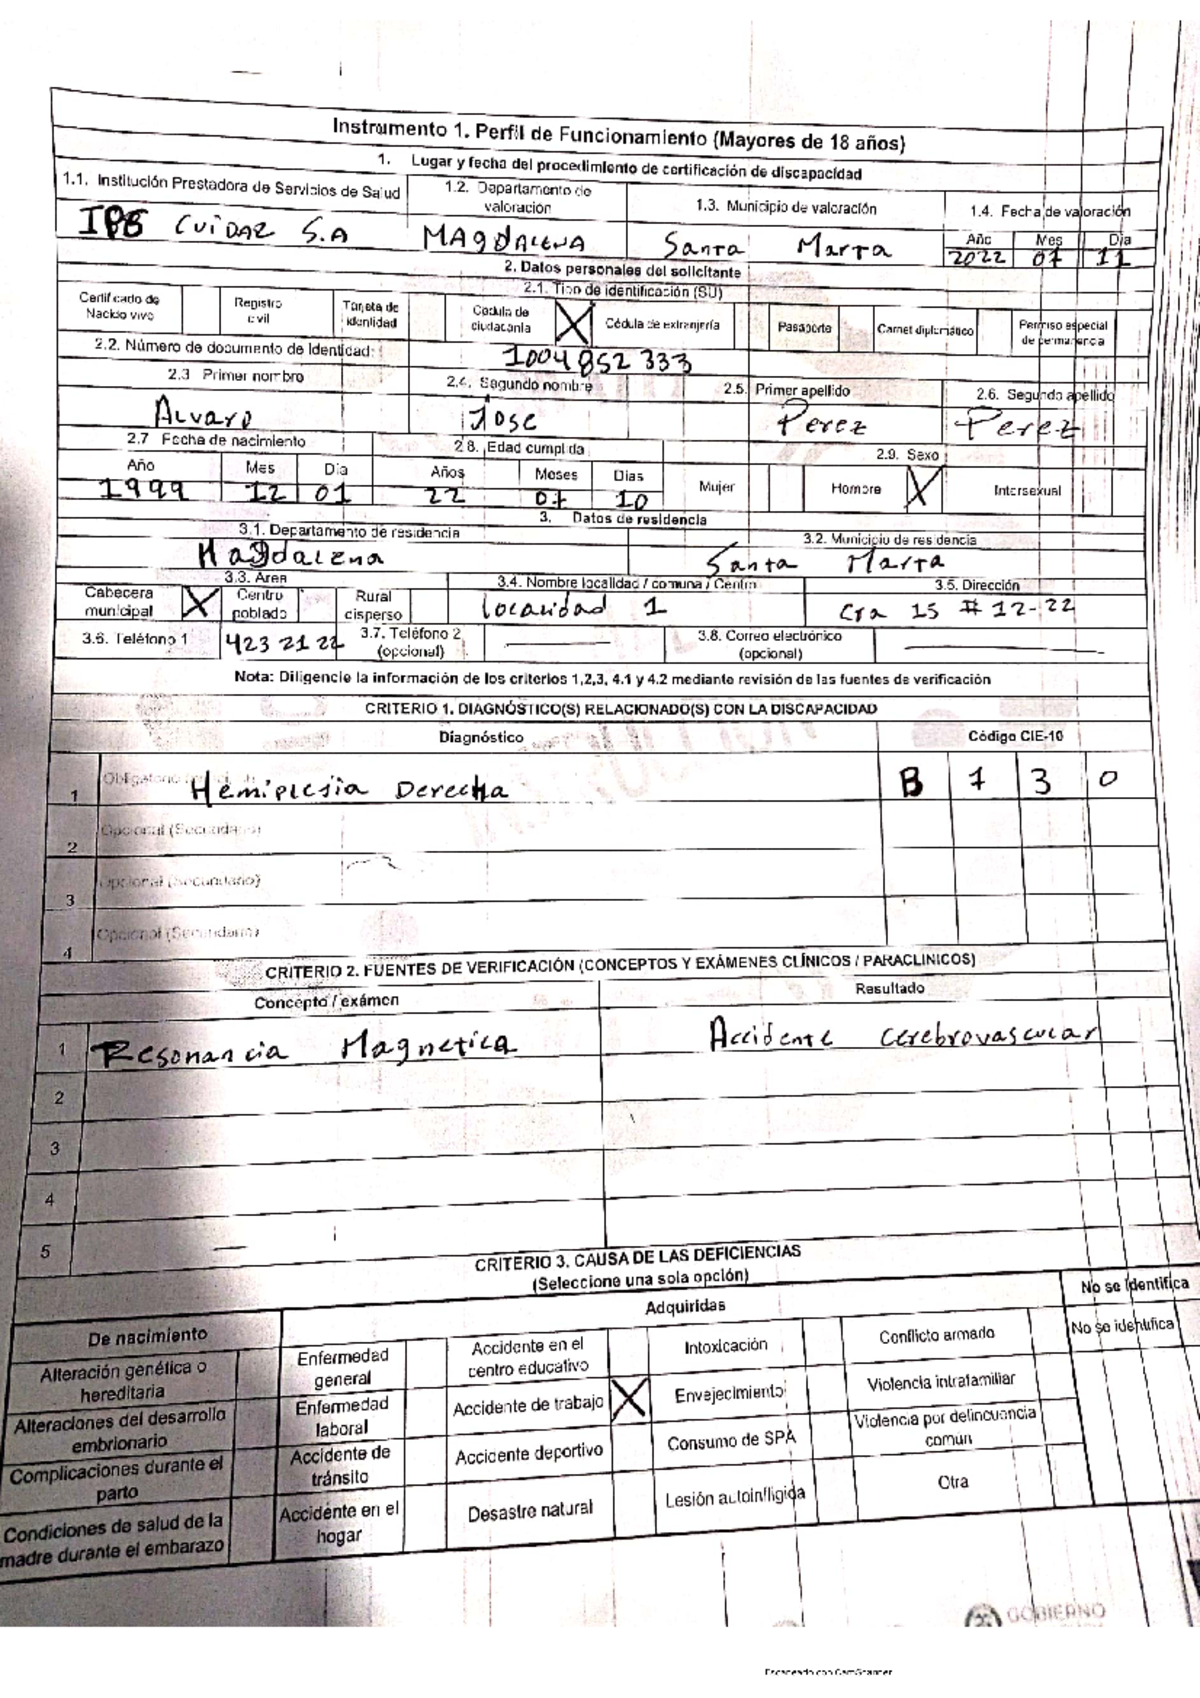 Instrumento 1. Perfil de Funcionamiento (Mayores de 18 años)
1. Lugar y fecha del procedimiento de certificación de discapacidad
1.1. Institución Prestadora de Servicios de Salud 1.2. Departamento de valoración 1.3. Municipio de valoración 1.4. Fecha de valoración
Año Mes Día
CUIDAR S.A MAGDALENA Santa Marta 2022 07 11
2. Datos personales del solicitante
2.1. Tipo de identificación (SU)
Certificado de Nacido vivo Registro civil Tarjeta de identidad Cédula de ciudadanía X Cédula de extranjería Pasaporte Carnet diplomático Permiso especial de permanencia
2.2. Número de documento de identidad: 1004852333
2.3 Primer nombre 2.4. Segundo nombre 2.5. Primer apellido 2.6. Segundo apellido
Alvaro Jose Perez Perez
2.7 Fecha de nacimiento 2.8. Edad cumplida 2.9. Sexo
Año Mes Día Años Meses Días Mujer Hombre X Intersexual
1999 12 01 22 07 10
3. Datos de residencia
3.1. Departamento de residencia 3.2. Municipio de residencia
Magdalena Santa Marta
3.3. Área 3.4. Nombre localidad / comuna / Centro 3.5. Dirección
Cabecera municipal X Centro poblado Rural disperso Localidad 1 Cra 15 # 12-22
3.6. Teléfono 1 423 21 22 3.7. Teléfono 2 (opcional) 3.8. Correo electrónico (opcional)
Nota: Diligencie la información de los criterios 1,2,3, 4.1 y 4.2 mediante revisión de las fuentes de verificación
CRITERIO 1. DIAGNÓSTICO(S) RELACIONADO(S) CON LA DISCAPACIDAD
Diagnóstico Código CIE-10
1 Hemiplesiia Derecha B 7 3 0
2 Opcional (Secundario)
3 Opcional (Secundario)
4 Opcional (Secundario)
CRITERIO 2. FUENTES DE VERIFICACIÓN (CONCEPTOS Y EXÁMENES CLÍNICOS / PARACLINICOS)
Concepto / exámen Resultado
1 Resonancia Magnetica Accidente cerebrovascular
2
3
4
5
CRITERIO 3. CAUSA DE LAS DEFICIENCIAS
(Seleccione una sola opción)
De nacimiento Adquiridas No se identifica
Alteración genética o hereditaria Enfermedad general Accidente en el centro educativo Intoxicación Conflicto armado No se identifica
Alteraciones del desarrollo embrionario Enfermedad laboral Accidente de trabajo X Envejecimiento Violencia intrafamiliar
Complicaciones durante el parto Accidente de tránsito Accidente deportivo Consumo de SPA Violencia por delincuencia común
Condiciones de salud de la madre durante el embarazo Accidente en el hogar Desastre natural Lesión autoinfligida Otra
GOBIERNO
Escaneado con CamScanner